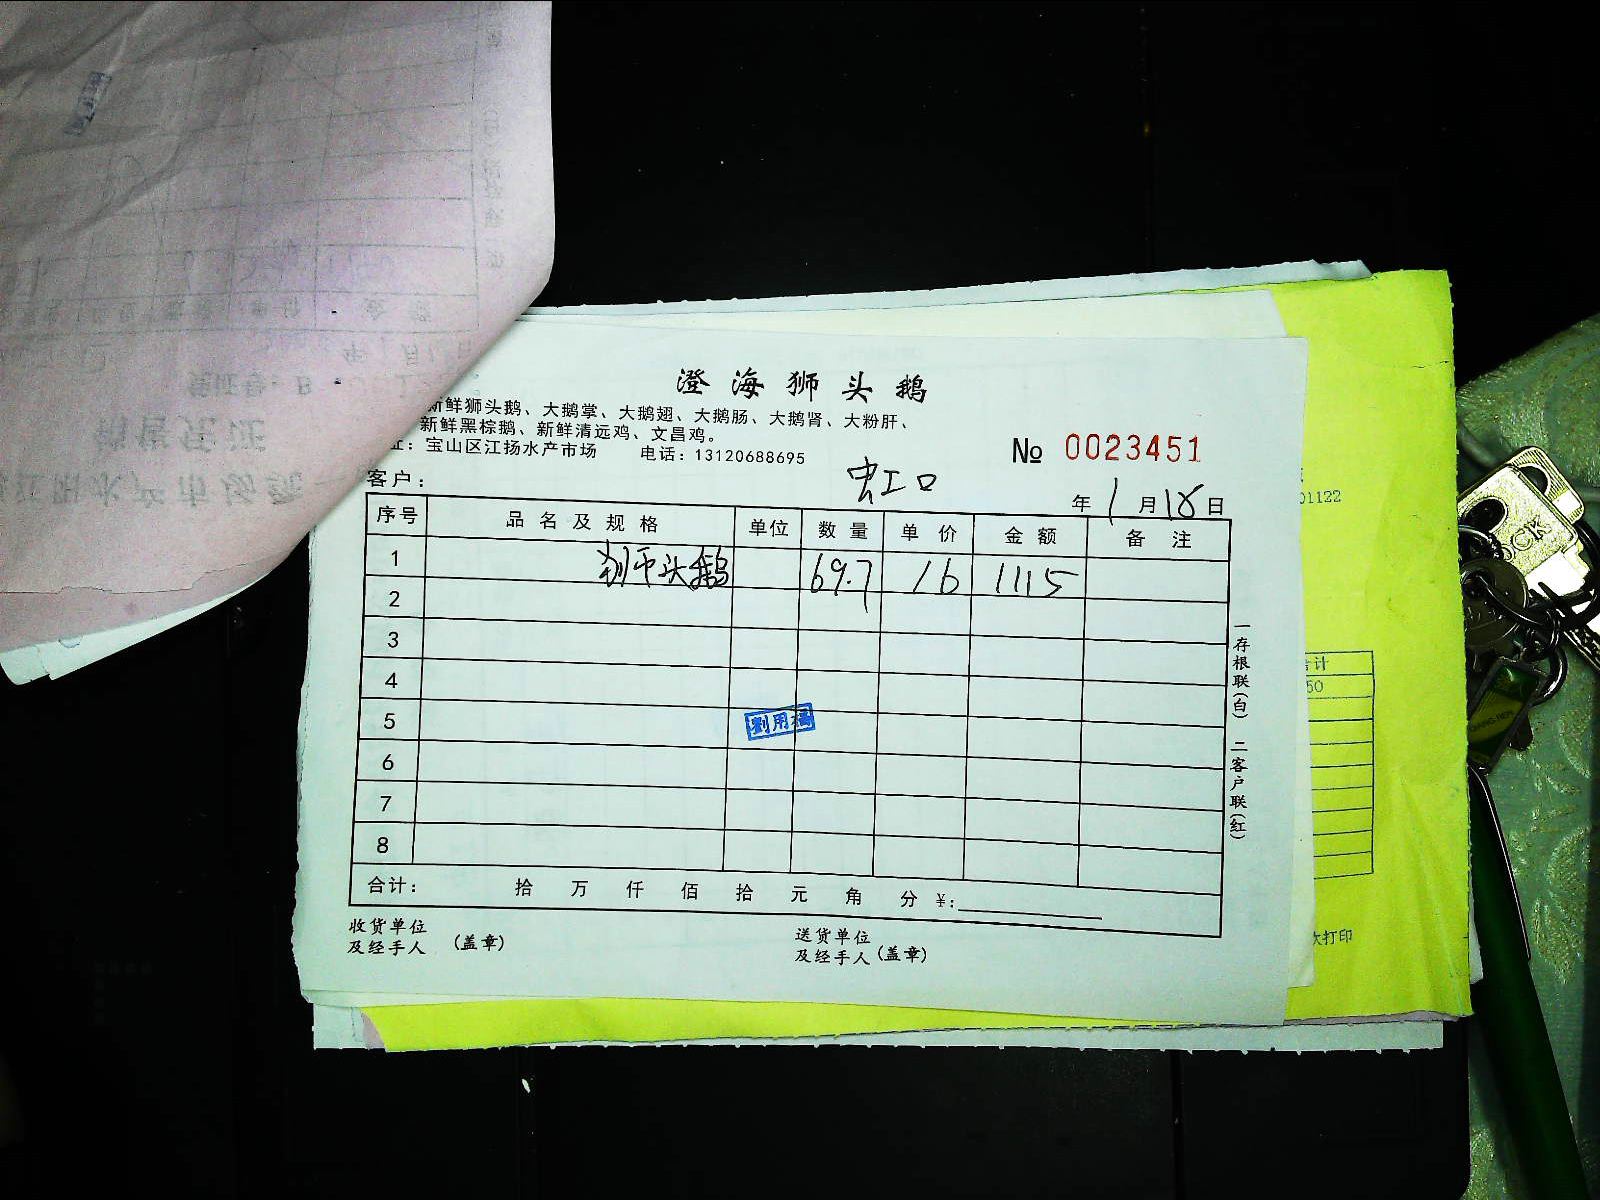 澄海狮头鹅
新鲜狮头鹅、大鹅掌、大鹅翅、大鹅肠、大鹅肾、大粉肝、
新鲜黑棕鹅、新鲜清远鸡、文昌鸡。
址：宝山区江扬水产市场 电话：13120688695
№ 0023451
客户： 虹口
年 1 月 18 日
序号 品名及规格 单位 数量 单价 金额 备注
1 狮头鹅 69.7 16 1115
2
3
4
5
6
7
8
合计： 拾 万 仟 佰 拾 元 角 分 ¥：
收货单位
及经手人 （盖章）
送货单位
及经手人 （盖章）
一存根联（白） 二客户联（红）
01122
合计
50
次打印
销售凭证
江阳水产市场